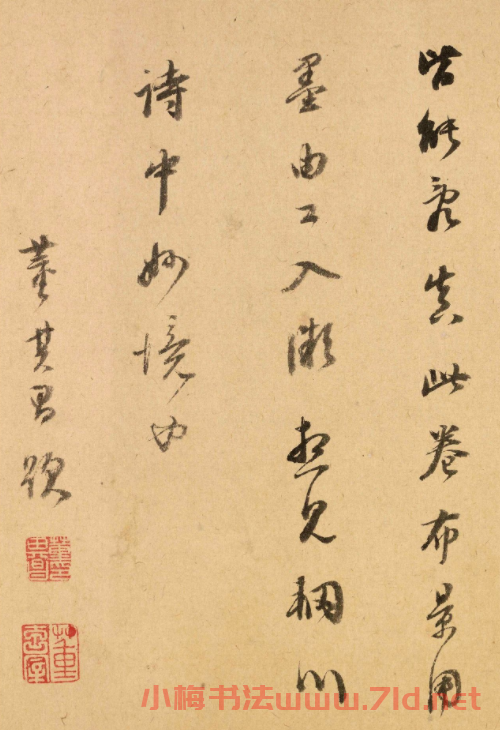 皆能亂真此卷布景用
墨由工入微想見輞川
詩中妙境也
董其昌跋
小梅书法www.7ld.net